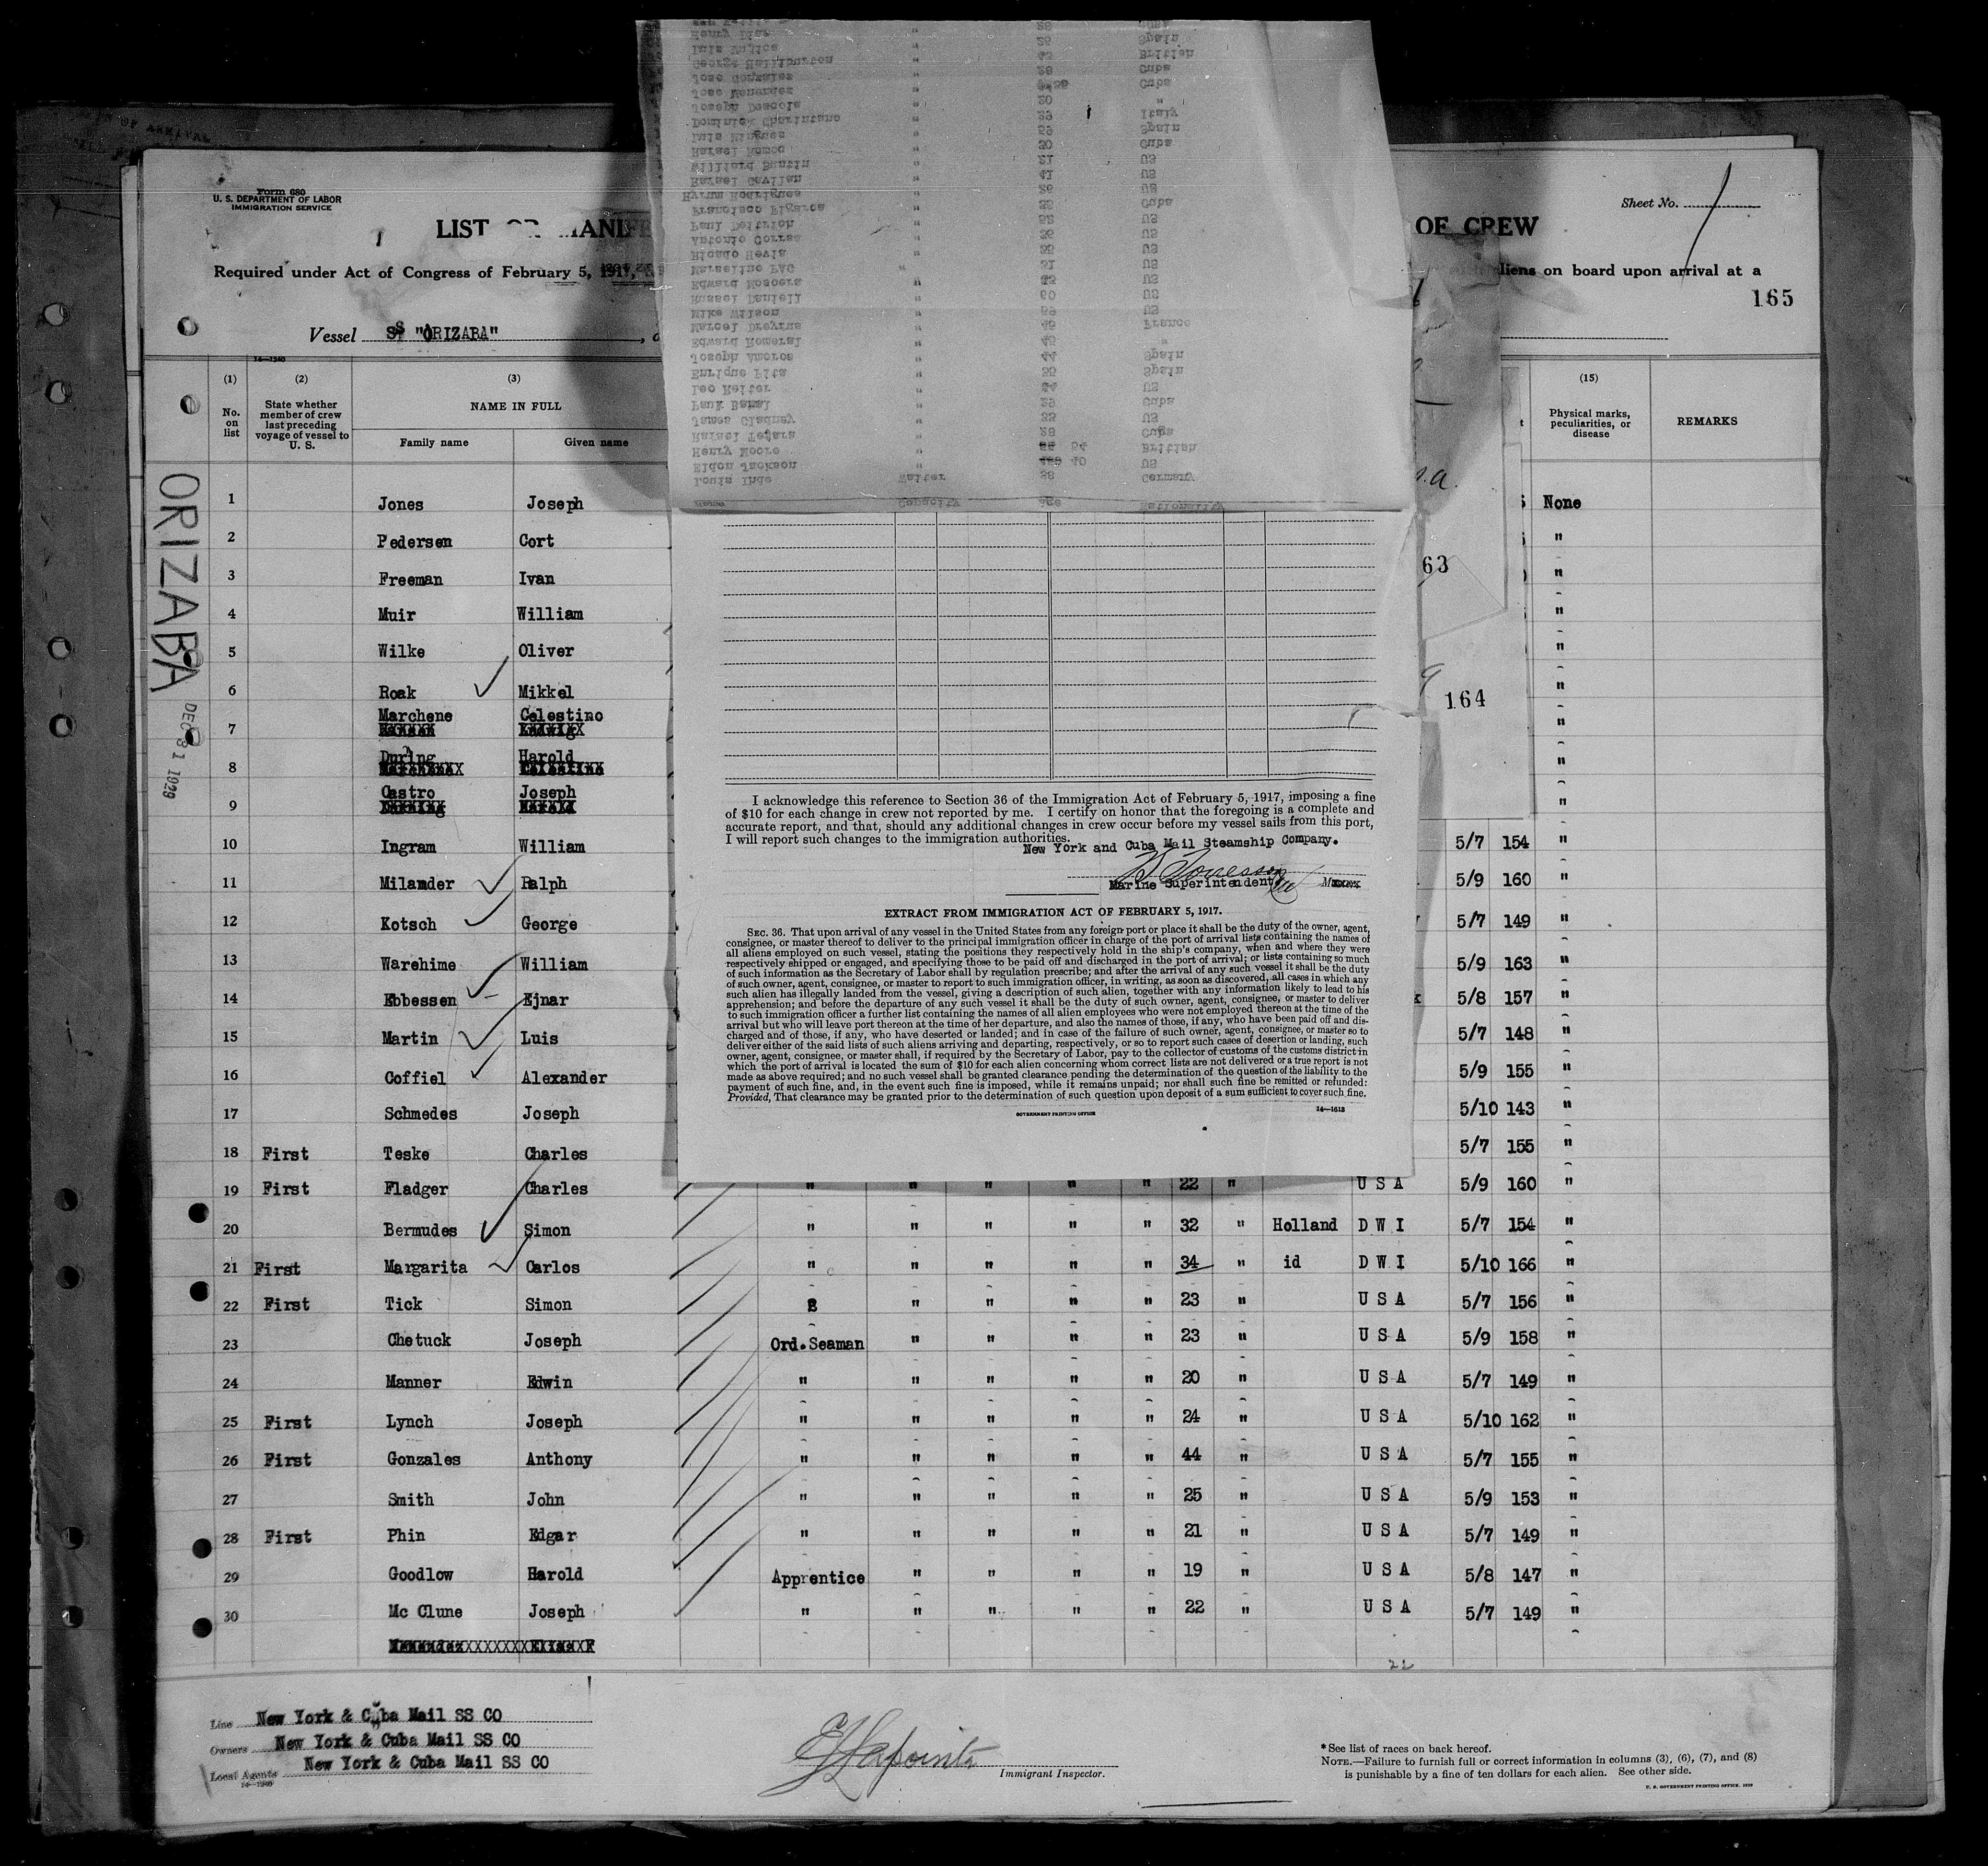 Form 680
U. S. DEPARTMENT OF LABOR
IMMIGRATION SERVICE
LIST
OF CREW
Sheet No.
Required under Act of Congress of February 5, 1917,
aliens on board upon arrival at a
165
Vessel SS "ORIZABA"
14—1240
(1) (2) (3) (15)
No. on list
State whether member of crew last preceding voyage of vessel to U. S.
NAME IN FULL
Family name Given name
Physical marks, peculiarities, or disease
REMARKS
ORIZABA
DEC 31 1929
1 Jones Joseph None
2 Pedersen Cort "
3 Freeman Ivan "
63
4 Muir William "
5 Wilke Oliver "
6 Roak Mikkel "
164
7 Marchene Celestino "
8 During Harold "
9 Castro Joseph "
10 Ingram William 5/7 154 "
11 Milander Ralph 5/9 160 "
12 Kotsch George 5/7 149 "
13 Warehime William 5/9 163 "
14 Ebbessen Ejnar 5/8 157 "
15 Martin Luis 5/7 148 "
16 Coffiel Alexander 5/9 155 "
17 Schmedes Joseph 5/10 143 "
18 First Teske Charles 5/7 155 "
19 First Fladger Charles " " " " " 22 " U S A 5/9 160 "
20 Bermudes Simon " " " " " 32 " Holland D W I 5/7 154 "
21 First Margarita Carlos " " " " " 34 " id D W I 5/10 166 "
22 First Tick Simon " " " " 23 " U S A 5/7 156 "
23 Chetuck Joseph Ord.Seaman " " " " 23 " U S A 5/9 158 "
24 Manner Edwin " " " " " 20 " U S A 5/7 149 "
25 First Lynch Joseph " " " " " 24 " U S A 5/10 162 "
26 First Gonzales Anthony " " " " " 44 " U S A 5/7 155 "
27 Smith John " " " " " 25 " U S A 5/9 153 "
28 First Phin Edgar " " " " " 21 " U S A 5/7 149 "
29 Goodlow Harold Apprentice " " " " 19 " U S A 5/8 147 "
30 Mc Clune Joseph " " " " " 22 " U S A 5/7 149 "
22
Henry Diaz " 26 Spain
Luis Mujica " British
George Halliburton " Cuba
Jose Gonzales " Cuba
Jose Menendez "
Joseph Dascola " 20 "
Italy
Spain
Cuba
US
US
Hyrum Rodrigues " 26 US
Francisco Figaroa " Cuba
Paul Deitrich " US
Antonio Correa " US
Ricado Hevia " US
Marselino PAG " US
Edward Moscera " US
Russel Daniell " 60 US
Mike Wilson " US
Marcel Dreyfus " 45 France
Edward Romeral " 45 "
Joseph Amoros " 44 Spain
Enrique Pita " 35 Spain
Leo Reiter " US
Cuba
James Gladney " 33 US
Rafael Tejara " 28 Cuba
Henry Moore " 54 British
Eldon Jackson " 40 US
Louis Inde Waiter 38 Germany
Name Capacity Age Nationality
I acknowledge this reference to Section 36 of the Immigration Act of February 5, 1917, imposing a fine
of $10 for each change in crew not reported by me. I certify on honor that the foregoing is a complete and
accurate report, and that, should any additional changes in crew occur before my vessel sails from this port,
I will report such changes to the immigration authorities.
New York and Cuba Mail Steamship Company.
Marine Superintendent
EXTRACT FROM IMMIGRATION ACT OF FEBRUARY 5, 1917.
SEC. 36. That upon arrival of any vessel in the United States from any foreign port or place it shall be the duty of the owner, agent,
consignee, or master thereof to deliver to the principal immigration officer in charge of the port of arrival lists containing the names of
all aliens employed on such vessel, stating the positions they respectively hold in the ship's company, when and where they were
respectively shipped or engaged, and specifying those to be paid off and discharged in the port of arrival; or lists containing so much
of such information as the Secretary of Labor shall by regulation prescribe; and after the arrival of any such vessel it shall be the duty
of such owner, agent, consignee, or master to report to such immigration officer, in writing, as soon as discovered, all cases in which any
such alien has illegally landed from the vessel, giving a description of such alien, together with any information likely to lead to his
apprehension; and before the departure of any such vessel it shall be the duty of such owner, agent, consignee, or master to deliver
to such immigration officer a further list containing the names of all alien employees who were not employed thereon at the time of the
arrival but who will leave port thereon at the time of her departure, and also the names of those, if any, who have been paid off and dis-
charged and of those, if any, who have deserted or landed; and in case of the failure of such owner, agent, consignee, or master so to
deliver either of the said lists of such aliens arriving and departing, respectively, or so to report such cases of desertion or landing, such
owner, agent, consignee, or master shall, if required by the Secretary of Labor, pay to the collector of customs of the customs district in
which the port of arrival is located the sum of $10 for each alien concerning whom correct lists are not delivered or a true report is not
made as above required; and no such vessel shall be granted clearance pending the determination of the question of the liability to the
payment of such fine, and, in the event such fine is imposed, while it remains unpaid; nor shall such fine be remitted or refunded:
Provided, That clearance may be granted prior to the determination of such question upon deposit of a sum sufficient to cover such fine.
GOVERNMENT PRINTING OFFICE 14—1613
Line New York & Cuba Mail SS CO
Owners New York & Cuba Mail SS CO
Local Agents New York & Cuba Mail SS CO
14—1240
E Lapointe
Immigrant Inspector.
*See list of races on back hereof.
NOTE.—Failure to furnish full or correct information in columns (3), (6), (7), and (8)
is punishable by a fine of ten dollars for each alien. See other side.
U. S. GOVERNMENT PRINTING OFFICE. 1929